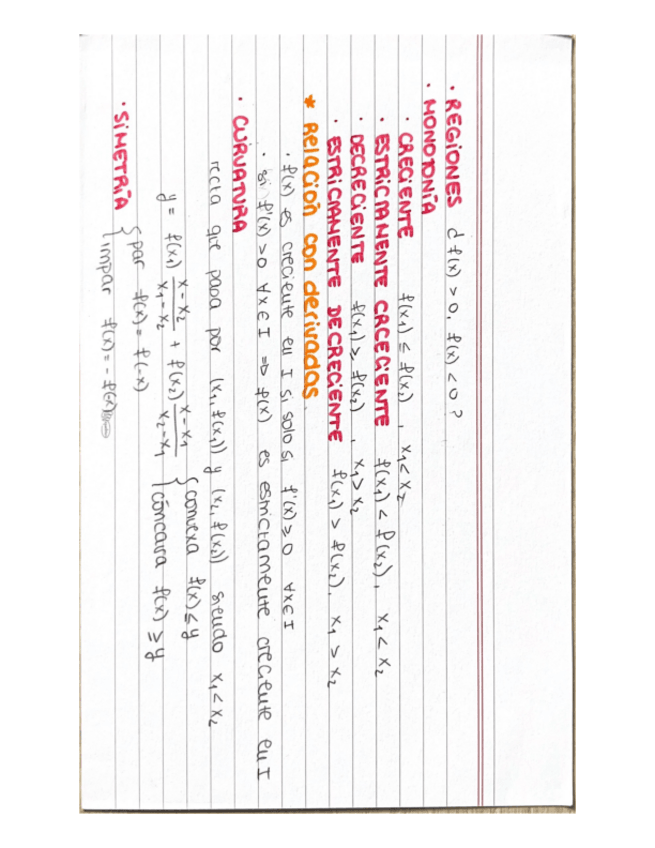 · REGIONES ¿ f(x) > 0, f(x) < 0 ?
· MONOTONÍA
· CRECIENTE f(x₁) ≤ f(x₂), x₁ < x₂
· ESTRICTAMENTE CRECIENTE f(x₁) < f(x₂), x₁ < x₂
· DECRECIENTE f(x₁) ≥ f(x₂), x₁ > x₂
· ESTRICTAMENTE DECRECIENTE f(x₁) > f(x₂), x₁ > x₂
* Relación con derivadas
· f(x) es creciente en I si solo si f'(x) ≥ 0 ∀x∈I
· si f'(x) > 0 ∀x∈I ⇒ f(x) es estrictamente creciente en I
· CURVATURA
recta que pasa por (x₁, f(x₁)) y (x₂, f(x₂)) siendo x₁ < x₂
y = f(x₁) (x - x₂)/(x₁ - x₂) + f(x₂) (x - x₁)/(x₂ - x₁) { convexa f(x) ≤ y
cóncava f(x) ≥ y
· SIMETRÍA { par f(x) = f(-x)
impar f(x) = - f(-x)